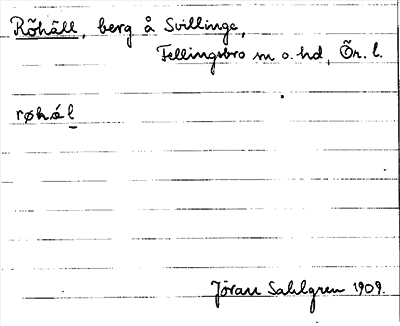 Röhäll, berg å Svillinge,
Fellingsbro sn o. hd, Ör. l.
røhál
Jöran Sahlgren 1909.